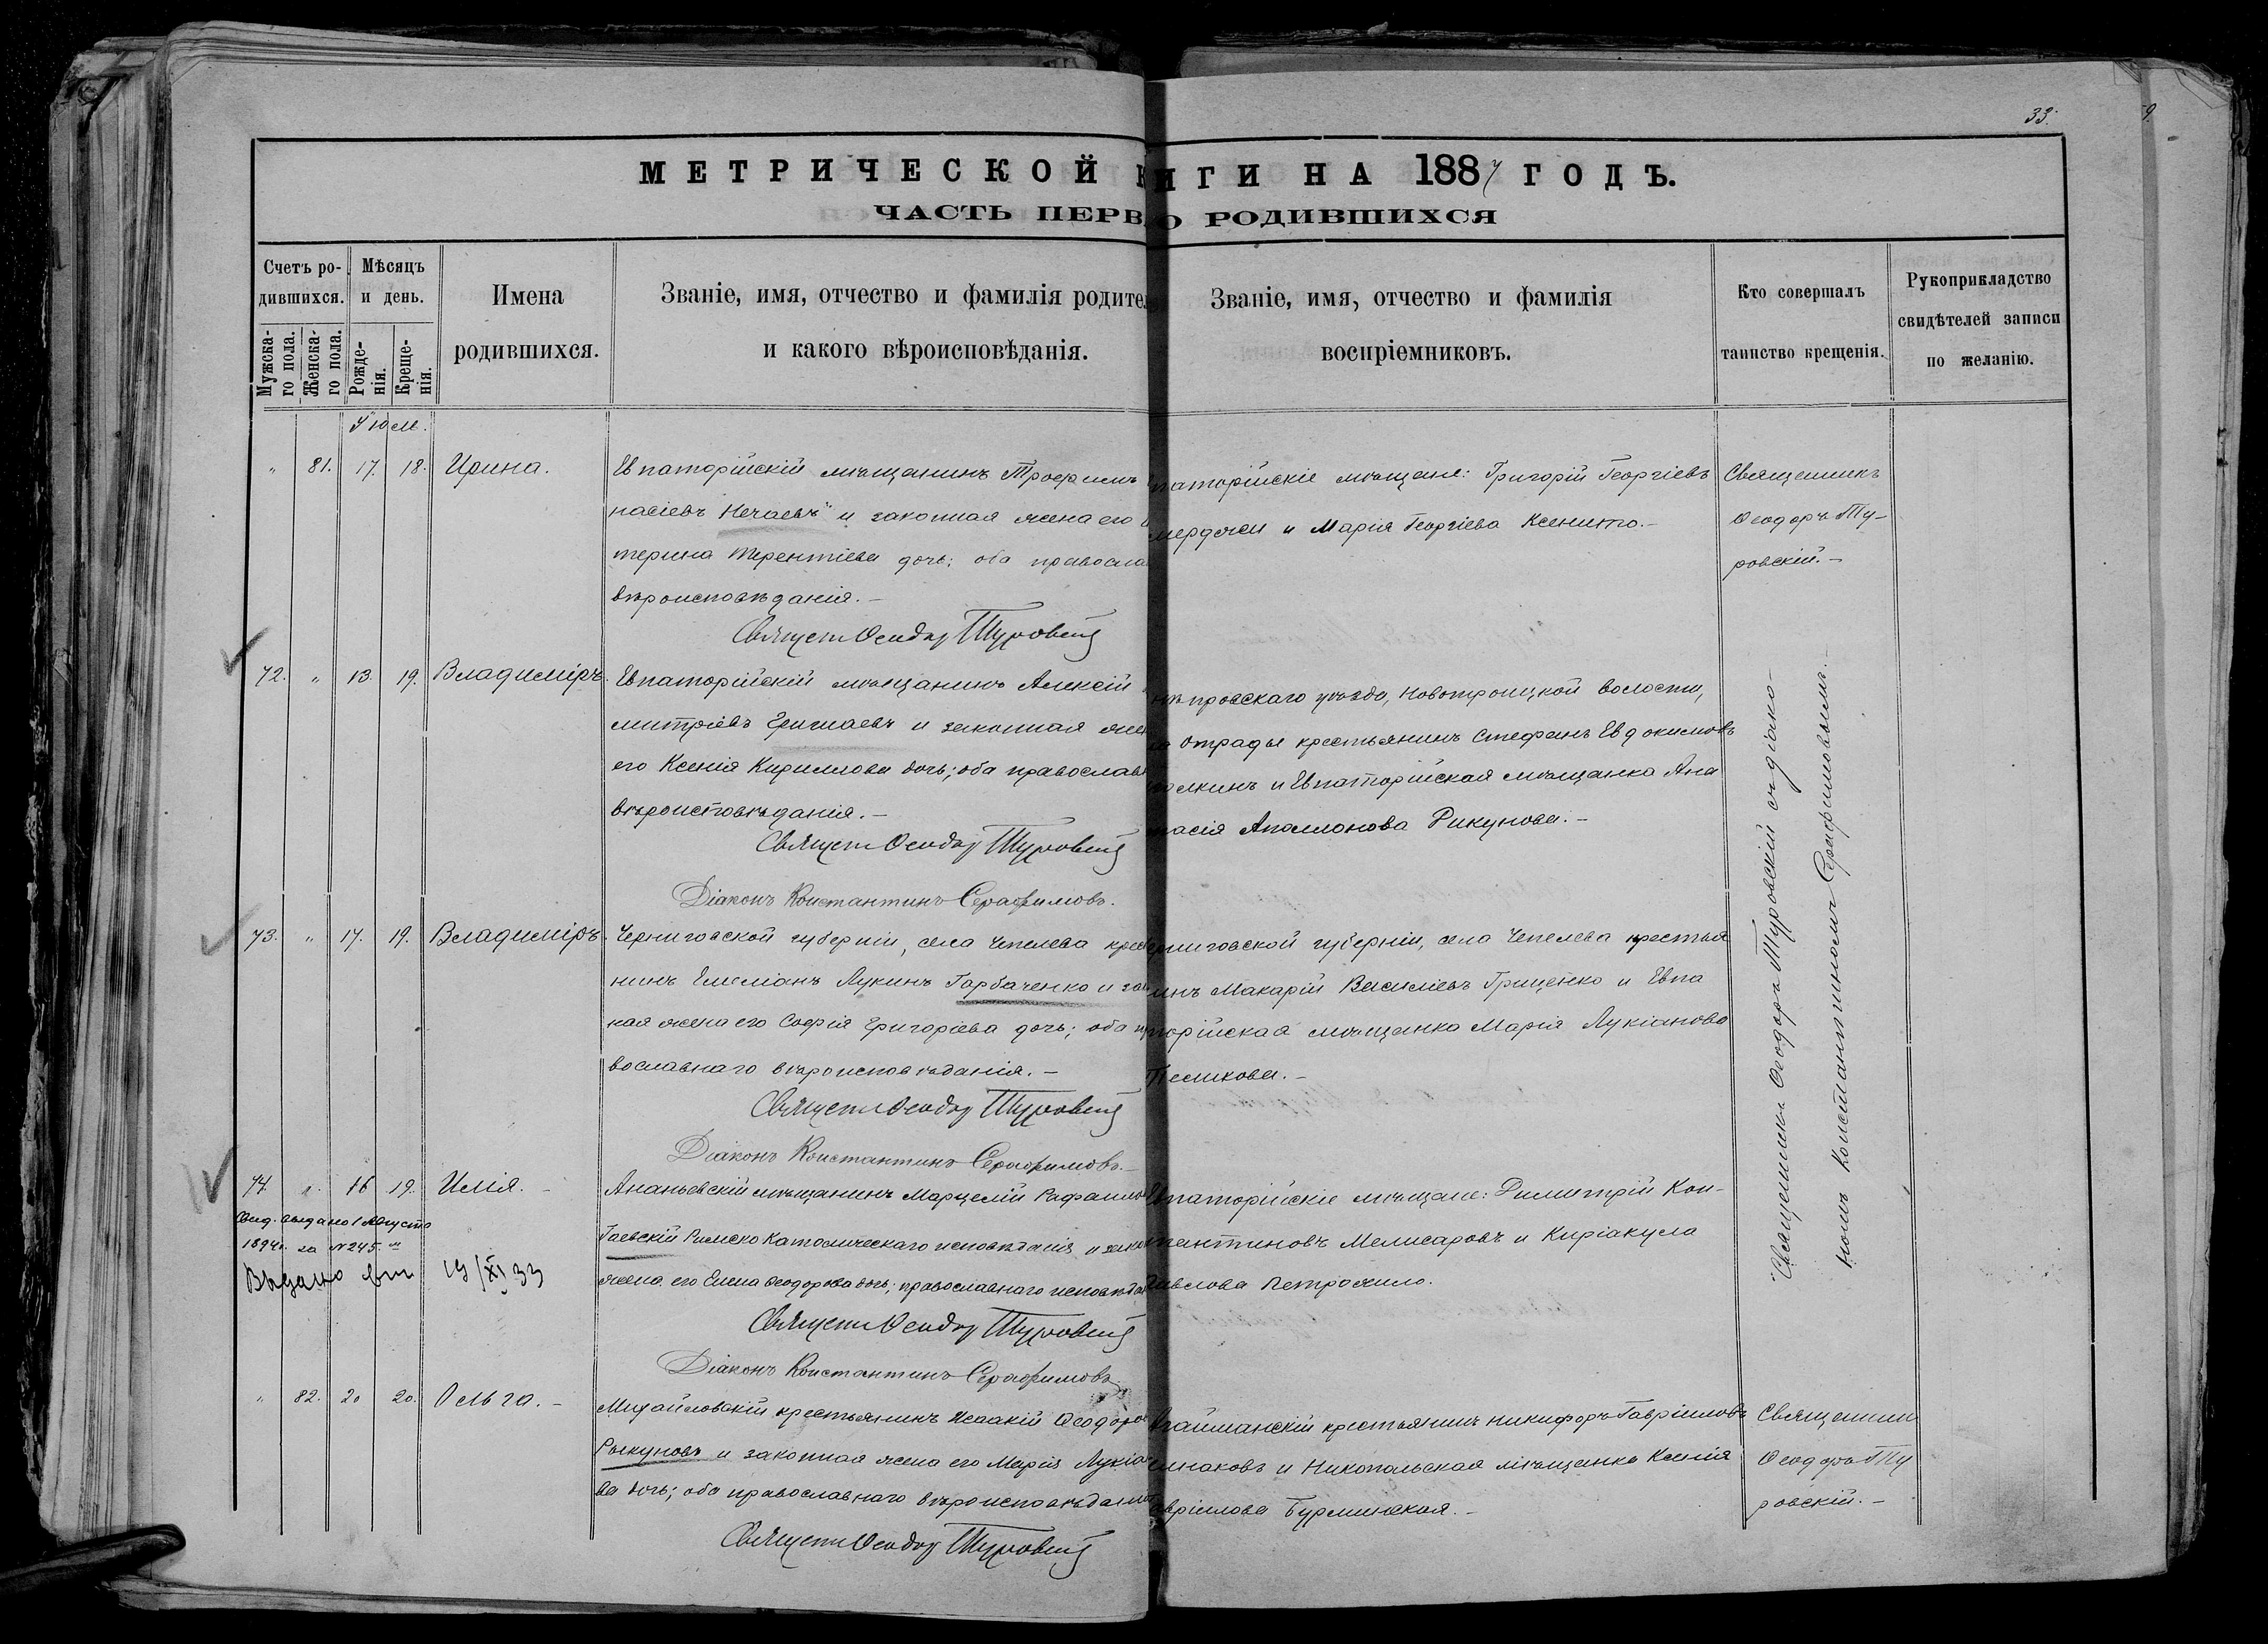 33.
9.
МЕТРИЧЕСКОЙ К
ИГИ НА 1887 ГОДЪ.
ЧАСТЬ ПЕРВ
О РОДИВШИХСЯ
Счетъ ро-
дившихся.
Мужска-
го пола.
Женска-
го пола.
Мѣсяцъ
и день.
Рожде-
нія.
Креще-
нія.
Имена
родившихся.
Званіе, имя, отчество и фамилія родител
и какого вѣроисповѣданія.
Званіе, имя, отчество и фамилія
воспріемниковъ.
Кто совершалъ
таинство крещенія.
Рукоприкладство
свидѣтелей записи
по желанію.
" 81. 17. 18. Ирина.
Евпаторійскій мѣщанинъ Трофимъ
насіевъ Нечаевъ и законная жена его
терина Терентіева дочь; оба правосла
вѣроисповѣданія.-
Священ Ѳеодор Туровскій
паторійскіе мѣщане: Григорій Георгіевъ
и Марія Георгіева Ксенито.-
Священникъ
Ѳеодоръ Ту-
ровскій.-
72. " 13. 19. Владиміръ.
Евпаторійскій мѣщанинъ Алексій
митріевъ Гришаевъ и законная жен
его Ксенія Кириллова дочь; оба православ
вѣроисповѣданія.-
Священ Ѳеодор Туровскій
Діаконъ Константинъ Серафимовъ.
ѣпровскаго уѣзда, Новотроицкой волости,
Отрады крестьянинъ Стефанъ Евдокимовъ
лкинъ и Евпаторійская мѣщанка Ана
тасія Аполлонова Рикунова.-
73. " 17. 19. Владиміръ.
Черниговской губерніи, села Чепелева крес
нинъ Емеліанъ Лукинъ Гарбаченко и за
ная жена его Софія Григоріева дочь; оба пр
вославнаго вѣроисповѣданія.-
Священ Ѳеодор Туровскій
Діаконъ Константинъ Серафимовъ.-
ерниговской губерніи, села Чепелева крестья
инъ Макарій Василіевъ Гриценко и Евпа
торійская мѣщанка Марія Лукіанова
Песикова.-
74. " 16 19. Илія.-
Свид. выдано 1 Августа
1894 г. за №245.
Выдано 19/XI 33
Ананьевскій мѣщанинъ Марцелій Рафаило
Гаевскій Римско Католическаго исповѣданія и закон
жена его Елена Ѳеодорова дочь; православнаго исповѣда
Священ Ѳеодор Туровскій
Діаконъ Константинъ Серафимовъ
впаторійскіе мѣщане: Димитрій Кон-
тантиновъ Мелисаровъ и Киріакула
авлова Петрожило.
Священникъ Ѳеодоръ Туровскій съ діако-
номъ Константиномъ Серафимовымъ.-
" 82. 20 20. Ольга.-
Михайловскій крестьянинъ Исаакій Ѳеодоро
Рыкуновъ и законная жена его Марія Лукіа
ва дочь; оба православнаго вѣроисповѣдан
Священ Ѳеодор Туровскій
гайманскій крестьянинъ Никифоръ Гавріиловъ
лнаковъ и Никопольская мѣщанка Ксенія
авріилова Бурлинская.-
Священник
Ѳеодоръ Ту
ровскій.-